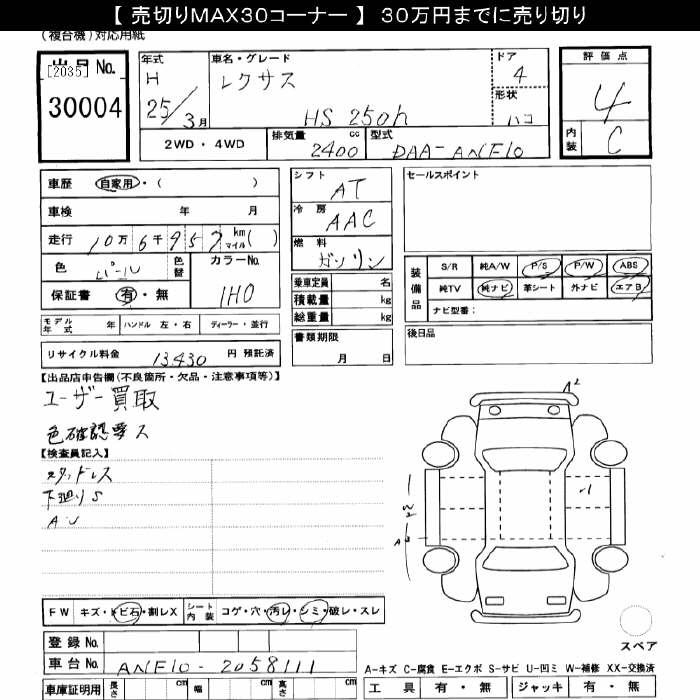 【 売切りMAX30コーナー 】 30万円までに売り切り
(複合機)対応用紙
出品 No.
[2035]
30004
年式
H
25/3月
車名・グレード
レクサス
HS 250h
ドア
4
形状
ハコ
評価点
4
内装
C
2WD・4WD
排気量
2400 cc
型式
DAA-ANF10
車歴
自家用・( )
車検 年 月
走行 10万6千957 km マイル( )
色
パール
色替
カラーNo.
1H0
保証書 有・無
モデル年式 年
ハンドル 左・右
ディーラー・並行
リサイクル料金 13,430 円 預託済
シフト
AT
冷房
AAC
燃料
ガソリン
乗車定員 名
積載量 kg
総重量 kg
書類期限
月 日
セールスポイント
装備品
S/R 純A/W P/S P/W ABS
純TV 純ナビ 革シート 外ナビ エアB
ナビ型番:
後日品
【出品店申告欄(不良箇所・欠品・注意事項等)】
ユーザー買取
色確認要ス
【検査員記入】
スタッドレス
下廻りS
A・U
A2
FW キズ・トビ石・割レX
シート内装 コゲ・穴・汚レ・シミ・破レ・スレ
登録 No.
車台 No. ANF10-2058111
車庫証明用 長さ cm 幅 cm 高さ cm
スペア
A-キズ C-腐食 E-エクボ S-サビ U-凹ミ W-補修 XX-交換済
工具 有・無 ジャッキ 有・無